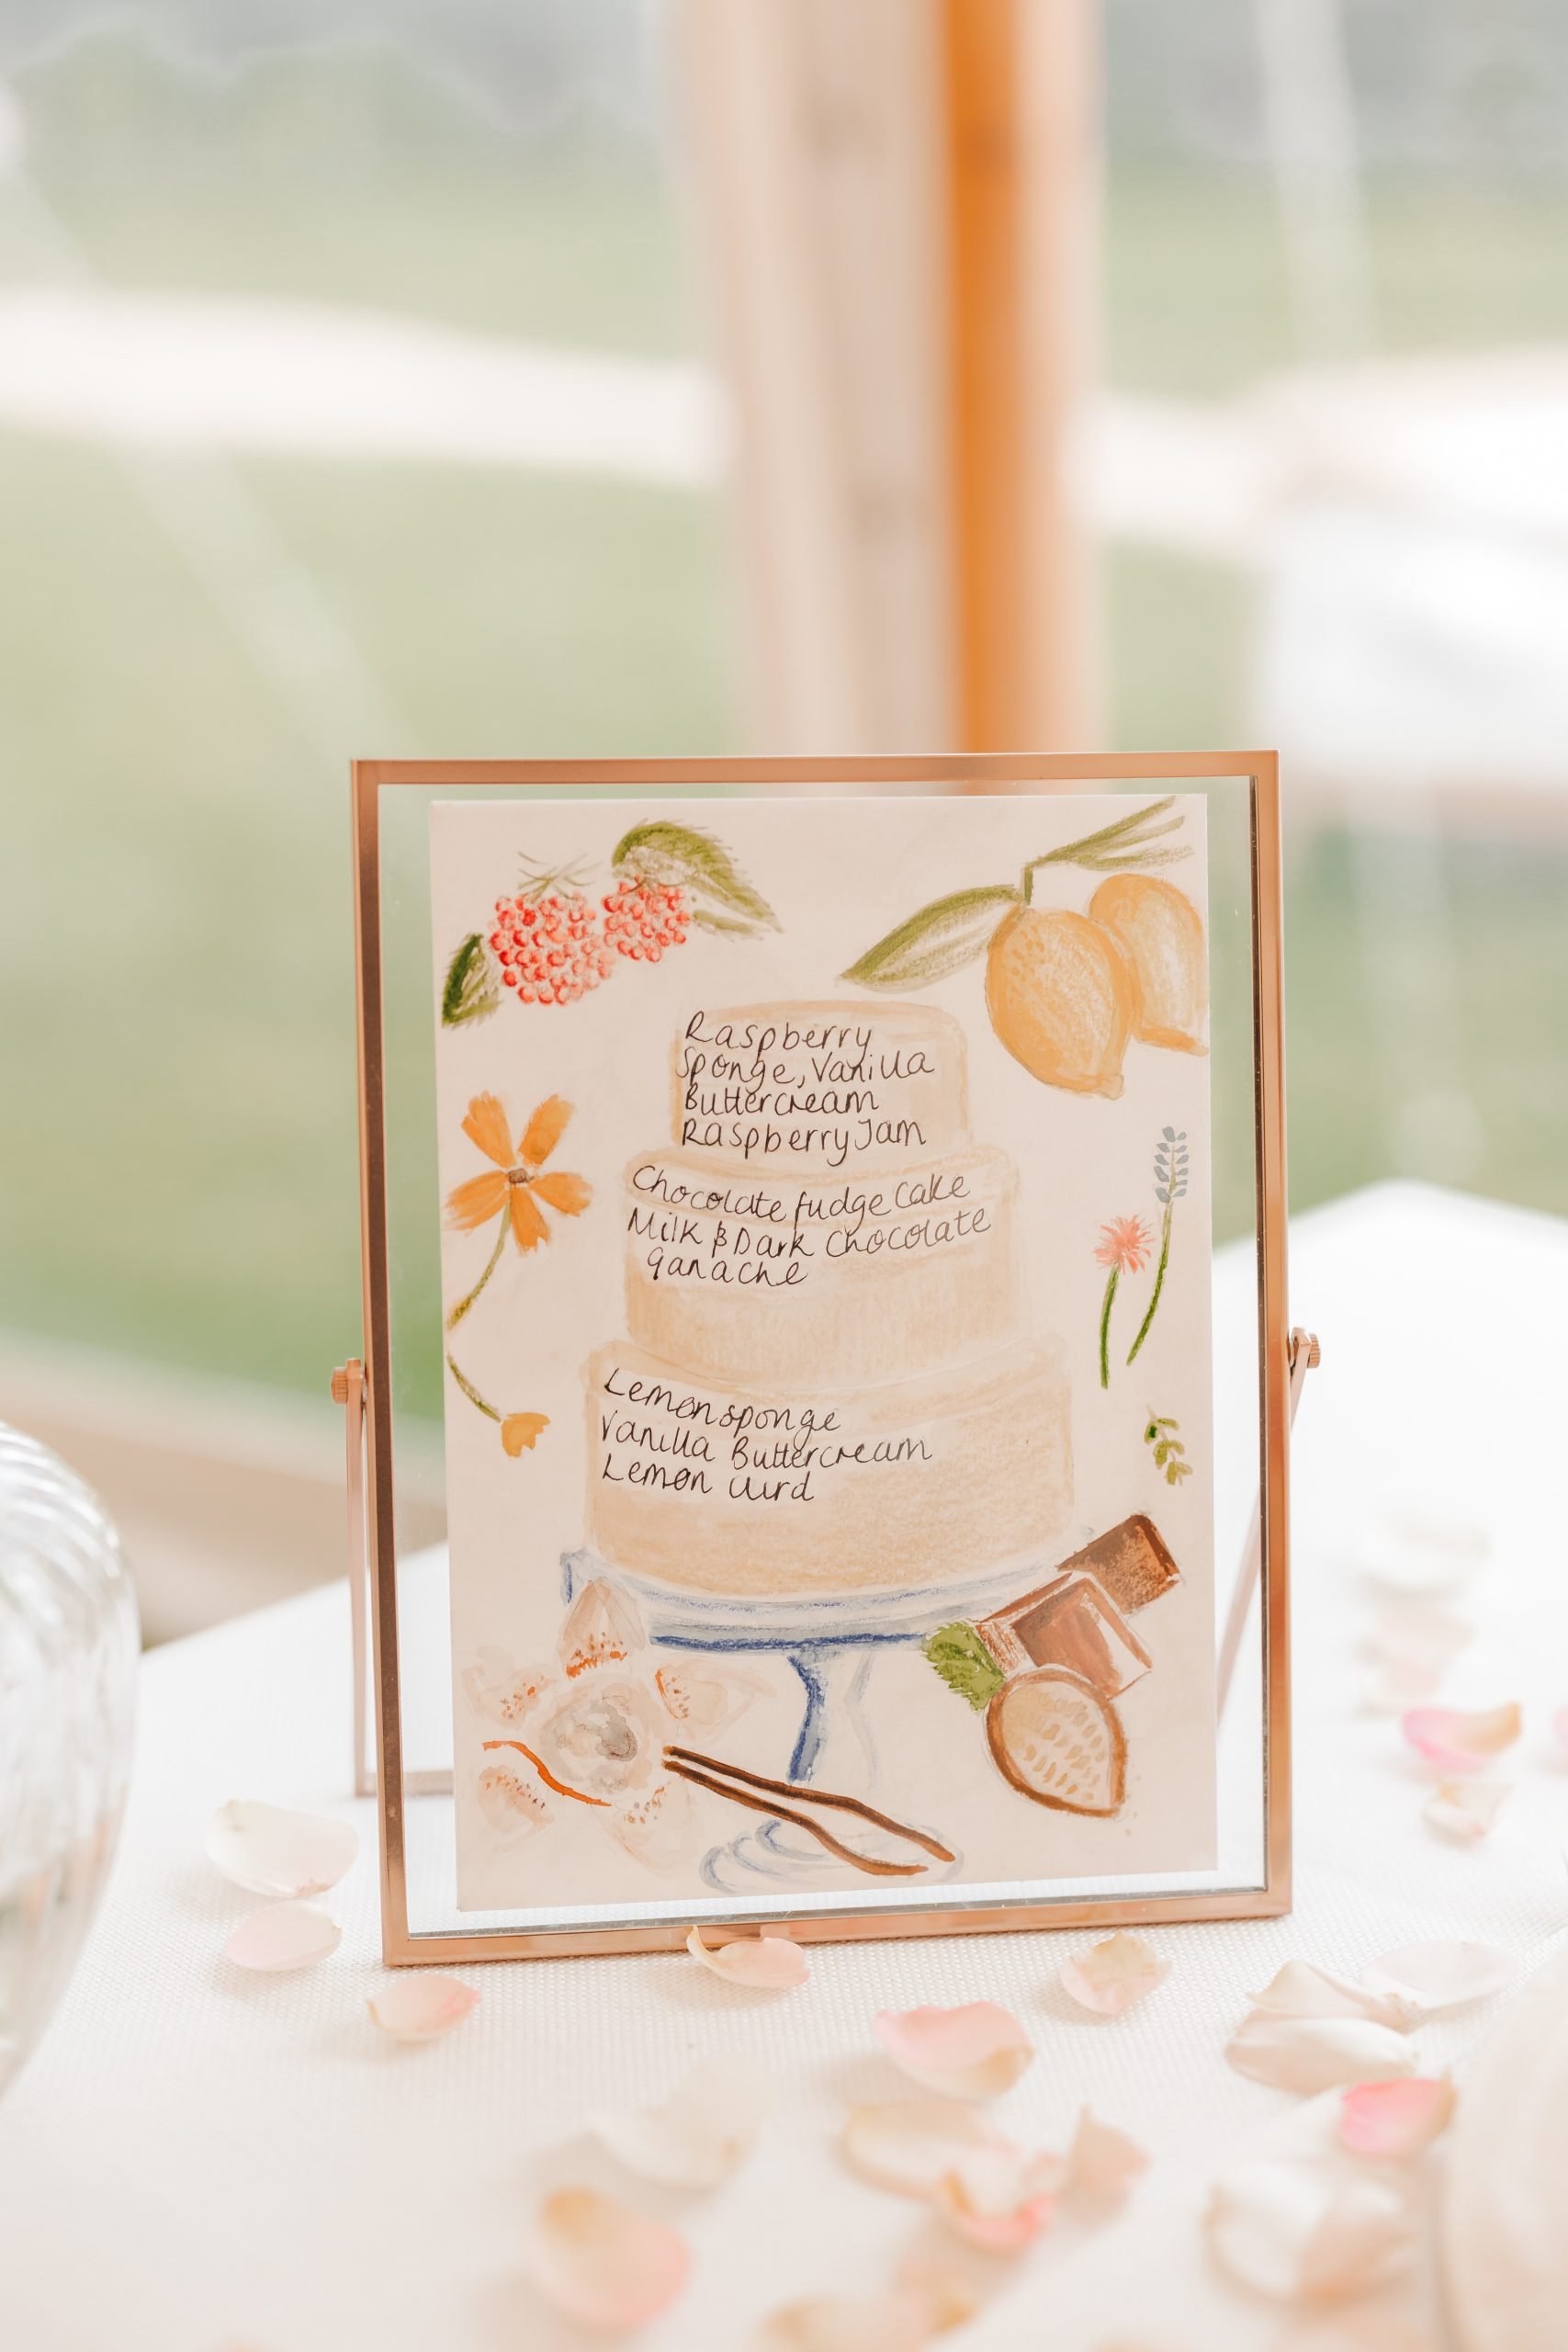 Raspberry
Sponge, Vanilla
Buttercream
Raspberry Jam
Chocolate fudge Cake
Milk & Dark Chocolate
ganache
Lemon sponge
Vanilla Buttercream
Lemon Curd